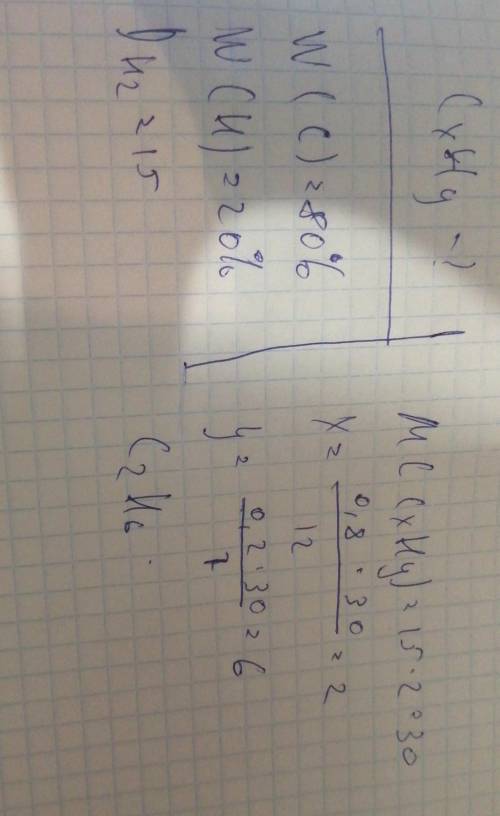 W(C) = 80%
W(H) = 20%
D H₂ = 15
CxHy - ?
M(CxHy) = 15 · 2 = 30
x = 0,8 · 30 / 12 = 2
y = 0,2 · 30 / 1 = 6
C₂H₆.